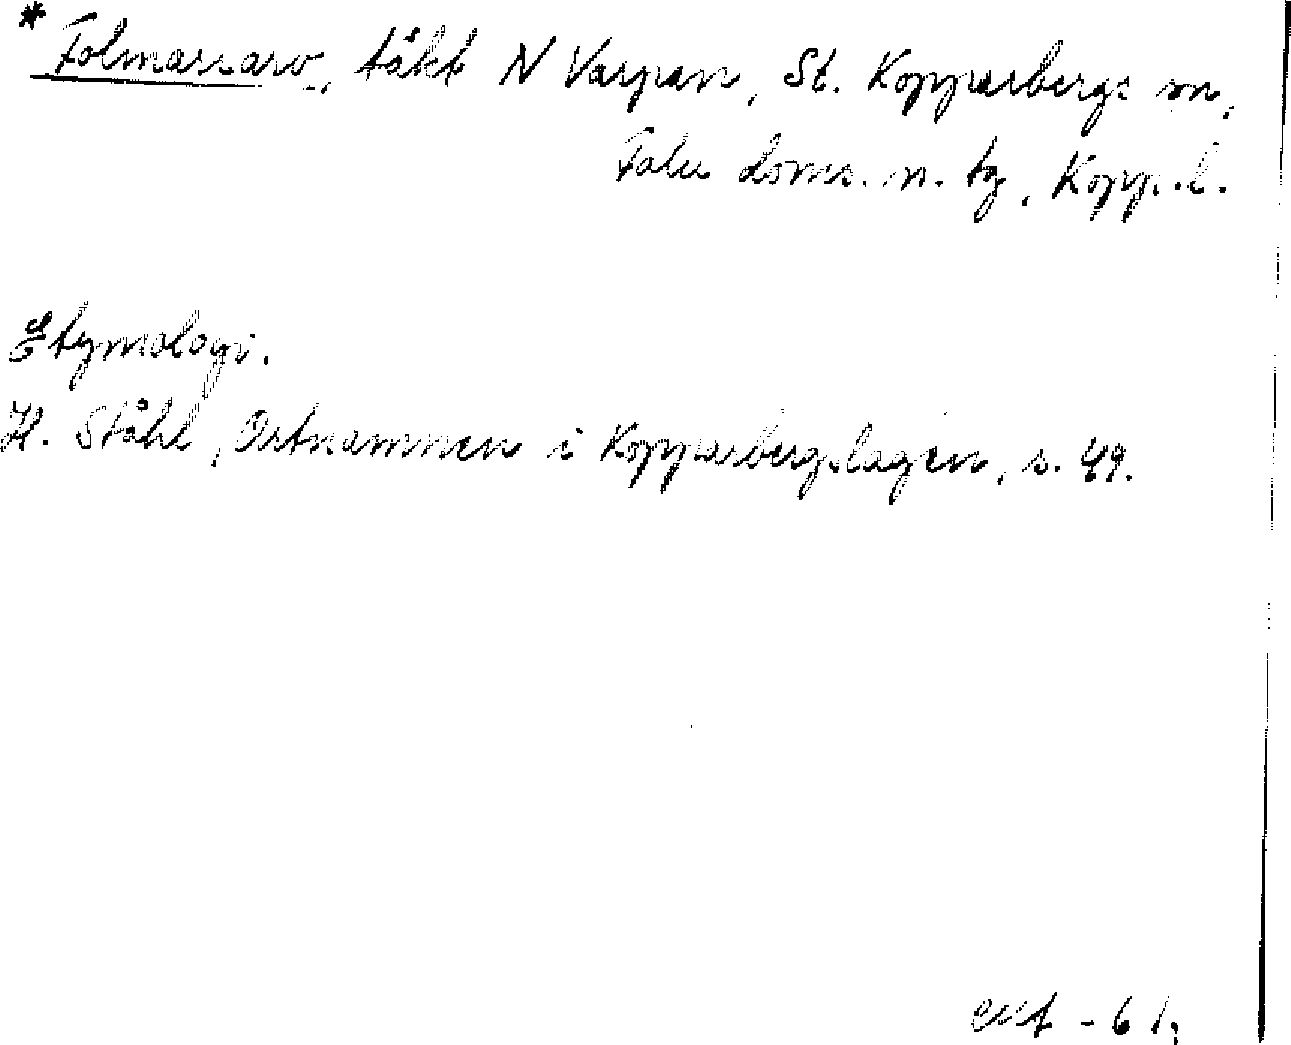 * Folmarsarv, täkt N Varpan, St. Kopparbergs sn,
Falu doms. n. tg, Kopp. l.
Etymologi.
H. Ståhl, Ortnamnen i Kopparbergslagen, s. 49.
-61.